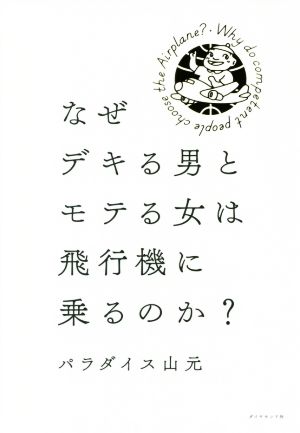 Why do competent people choose the Airplane?・
なぜ
デキる男と
モテる女は
飛行機に
乗るのか?
パラダイス山元
ダイヤモンド社